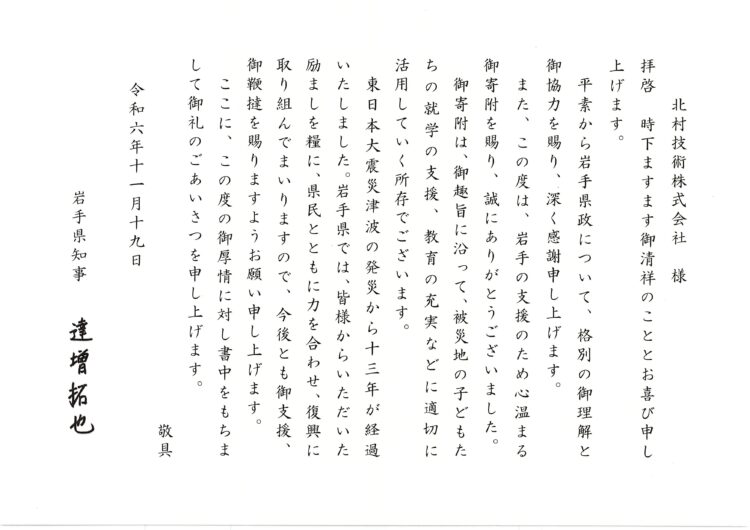 北村技術株式会社　様
拝啓　時下ますます御清祥のこととお喜び申し
上げます。
平素から岩手県政について、格別の御理解と
御協力を賜り、深く感謝申し上げます。
また、この度は、岩手の支援のため心温まる
御寄附を賜り、誠にありがとうございました。
御寄附は、御趣旨に沿って、被災地の子どもた
ちの就学の支援、教育の充実などに適切に
活用していく所存でございます。
東日本大震災津波の発災から十三年が経過
いたしました。岩手県では、皆様からいただいた
励ましを糧に、県民とともに力を合わせ、復興に
取り組んでまいりますので、今後とも御支援、
御鞭撻を賜りますようお願い申し上げます。
ここに、この度の御厚情に対し書中をもちま
して御礼のごあいさつを申し上げます。
敬具
令和六年十一月十九日
岩手県知事　達増拓也